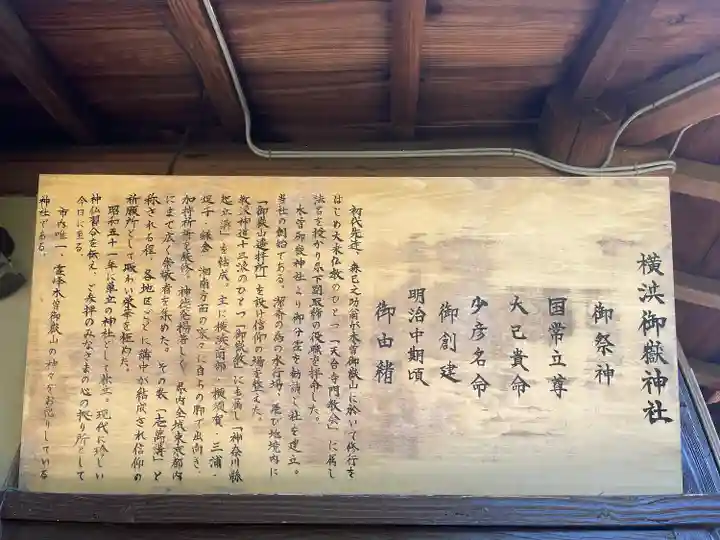 横浜御嶽神社
御祭神
国常立尊
大己貴命
少彦名命
御創建
明治中期頃
御由緒
初代先達、森巳之助翁が木曽御嶽山に於いて修行を
はじめ大乗仏教のひとつ「天台寺門教会」に属し
法名を授かり県下副取締の役職を拝命した。
木曽御嶽神社より御分霊を勧請し社を建立。
当社の創始である。潔斎の為の水行場、並び境内に
「御嶽山遥拝所」を設け信仰の場を整えた。
教派神道十三派のひとつ「御嶽教」にも属し「神奈川県
起立講」を結成。主に横浜南部・横須賀・三浦・
逗子・鎌倉・湘南方面の家々に自らの脚で出向き、
加持祈祷を厳修。神徳発揚著しく、県内全域東京都内
にまで広く崇敬者を集めた。その数「壱萬講」と
称される程、各地区ごとに講中が結成され信仰の
祈願所として賑わい栄華を極めた。
昭和五十一年に単立の神社として独立。現代に珍しい
神仏習合を伝え、ご参拝のみなさまの心の拠り所として
今日に至る。
市内唯一、霊峰木曽御嶽山の神々をお祀りしている
神社である。